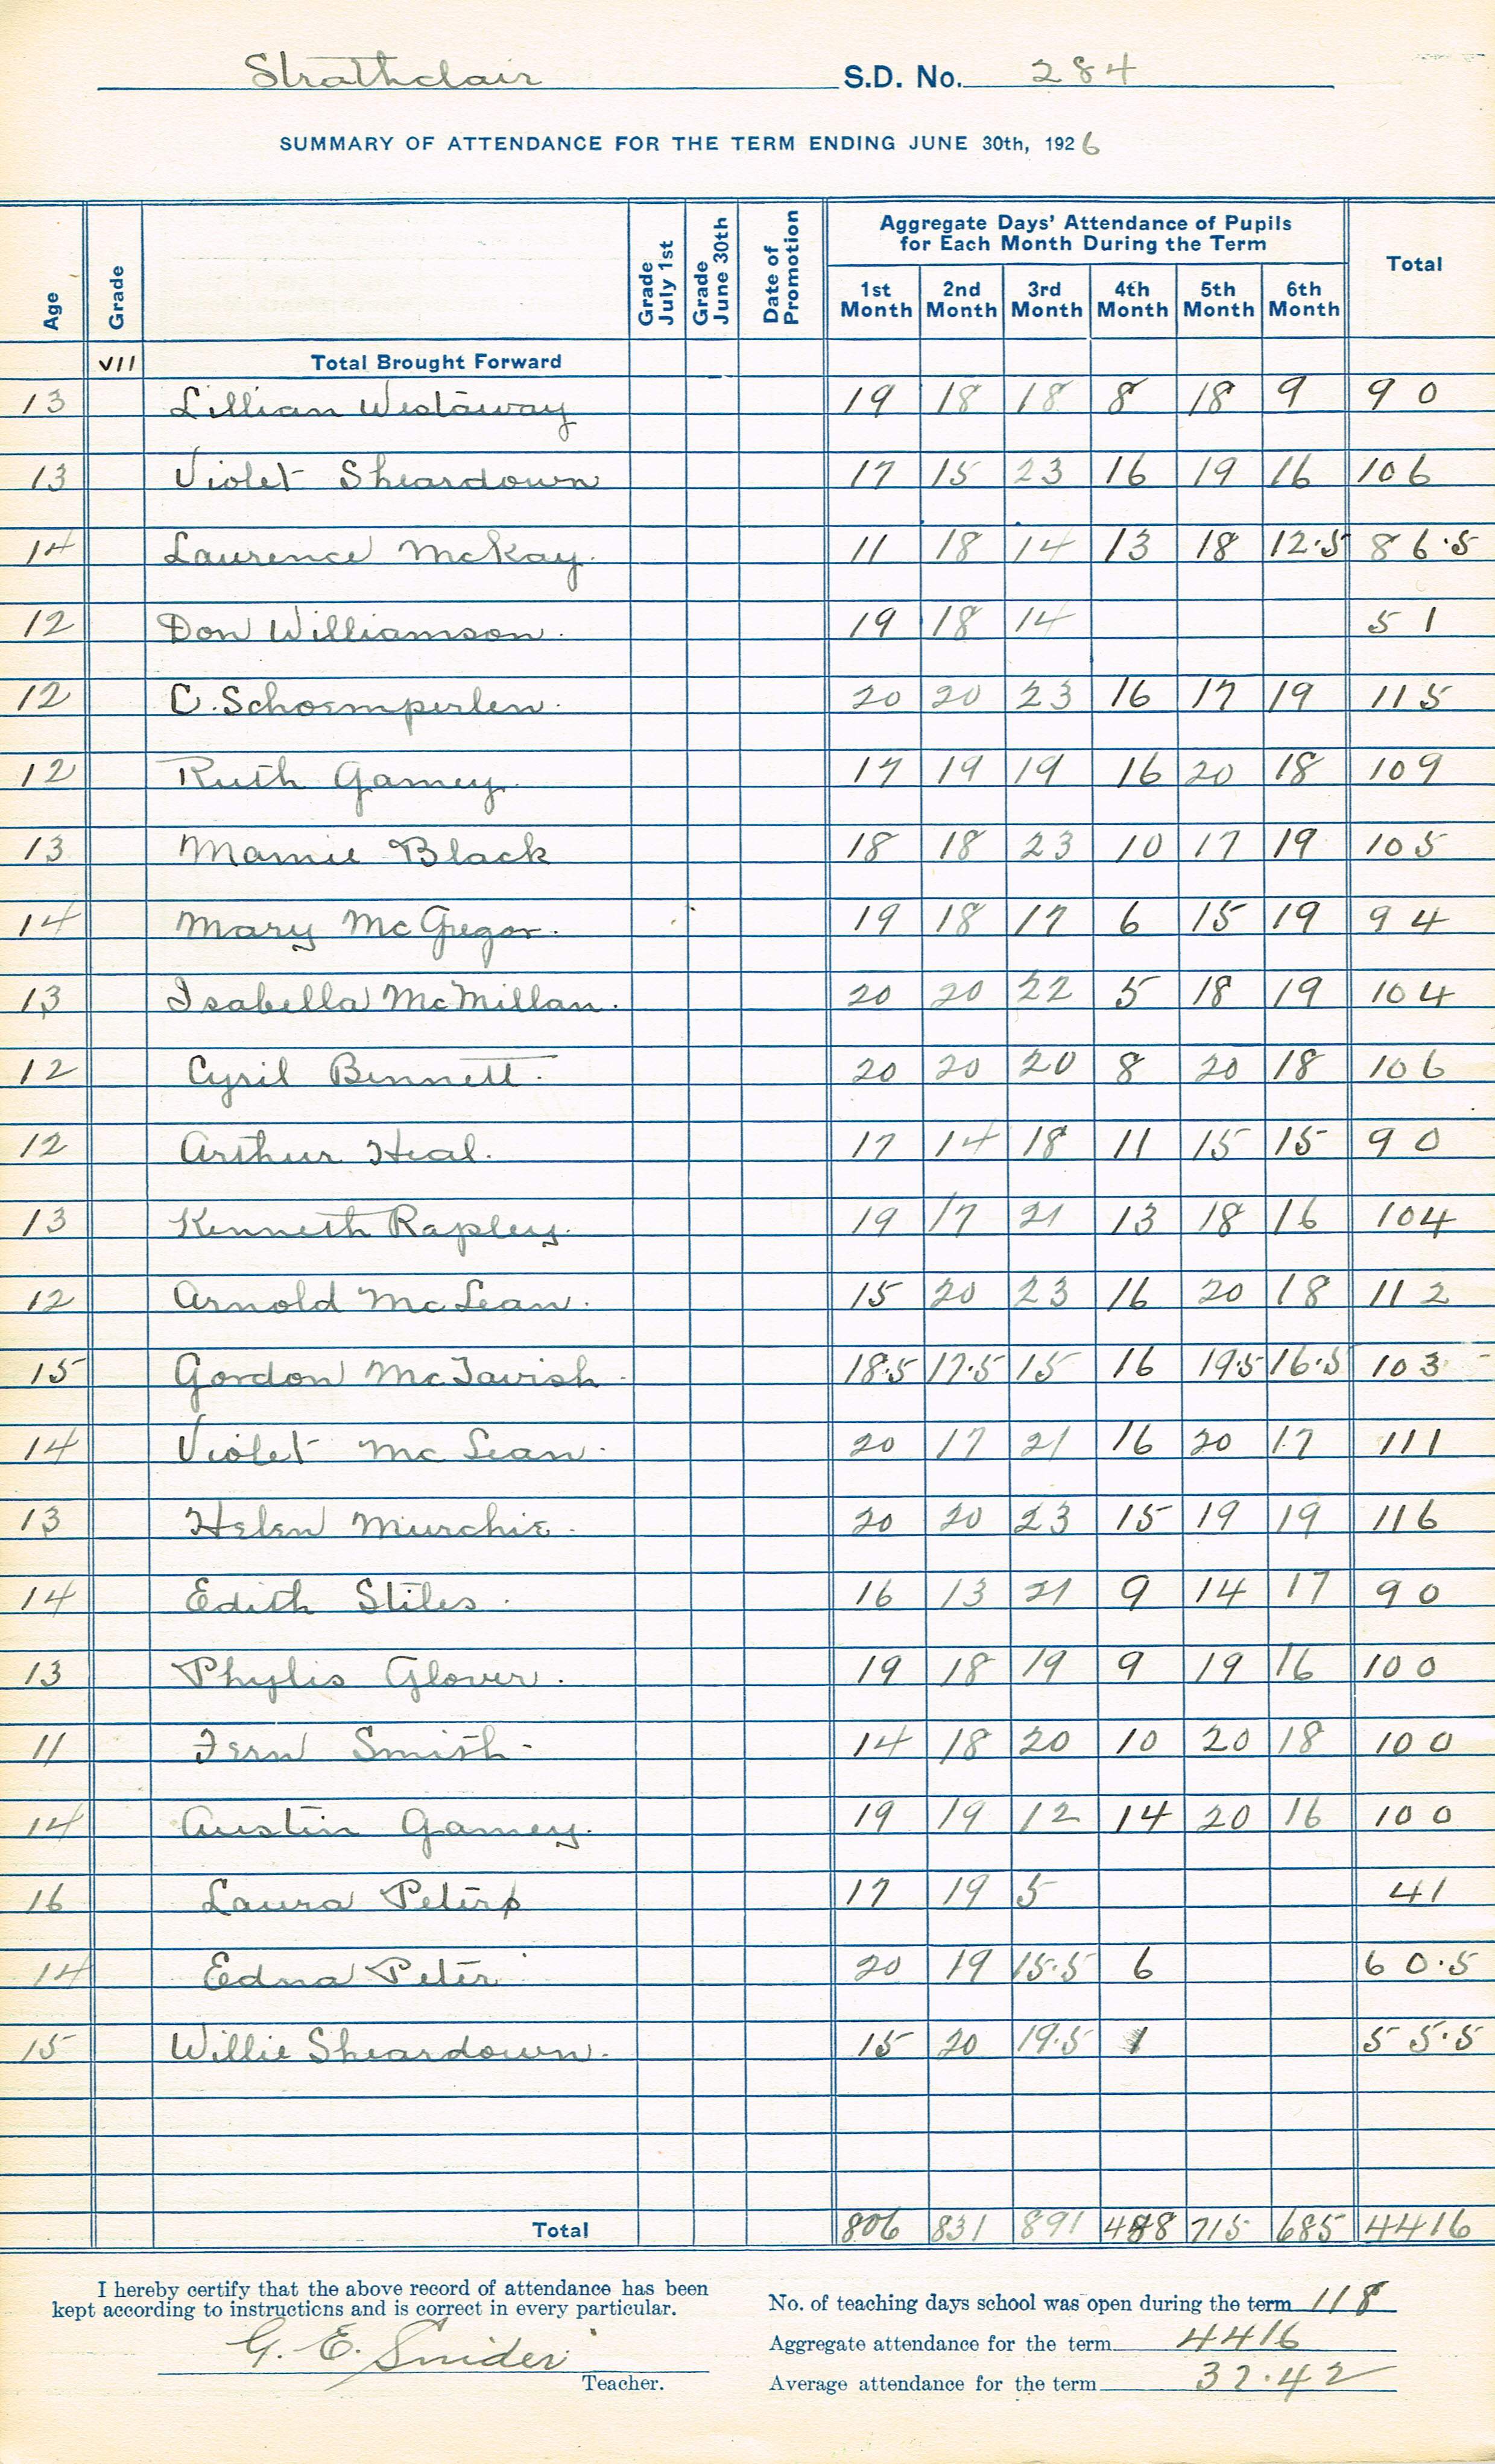 Strathclair S.D. No. 284
SUMMARY OF ATTENDANCE FOR THE TERM ENDING JUNE 30th, 1926
Age Grade Grade July 1st Grade June 30th Date of Promotion Aggregate Days' Attendance of Pupils for Each Month During the Term Total
1st Month 2nd Month 3rd Month 4th Month 5th Month 6th Month
VII Total Brought Forward
13 Lillian Westaway 19 18 18 8 18 9 90
13 Violet Sheardown 17 15 23 16 19 16 106
14 Laurence McKay. 11 18 14 13 18 12.5 86.5
12 Don Williamson. 19 18 14 51
12 C. Schoemperlen. 20 20 23 16 17 19 115
12 Ruth Gamey. 17 19 19 16 20 18 109
13 Mamie Black 18 18 23 10 17 19 105
14 Mary McGregor. 19 18 17 6 15 19 94
13 Isabella McMillan. 20 20 22 5 18 19 104
12 Cyril Bennett. 20 20 20 8 20 18 106
12 Arthur Heal. 17 14 18 11 15 15 90
13 Kenneth Rapley. 19 17 21 13 18 16 104
12 Arnold McLean. 15 20 23 16 20 18 112
15 Gordon McTavish. 18.5 17.5 15 16 19.5 16.5 103
14 Violet McLean. 20 17 21 16 20 17 111
13 Helen Murchie. 20 20 23 15 19 19 116
14 Edith Stiles. 16 13 21 9 14 17 90
13 Phylis Glover. 19 18 19 9 19 16 100
11 Fern Smith. 14 18 20 10 20 18 100
14 Austin Gamey. 19 19 12 14 20 16 100
16 Laura Peters 17 19 5 41
14 Edna Peter 20 19 15.5 6 60.5
15 Willie Sheardown. 15 20 19.5 1 55.5
Total 806 831 891 488 715 685 4416
I hereby certify that the above record of attendance has been
kept according to instructions and is correct in every particular.
G. E. Snider
Teacher.
No. of teaching days school was open during the term 118
Aggregate attendance for the term 4416
Average attendance for the term 37.42